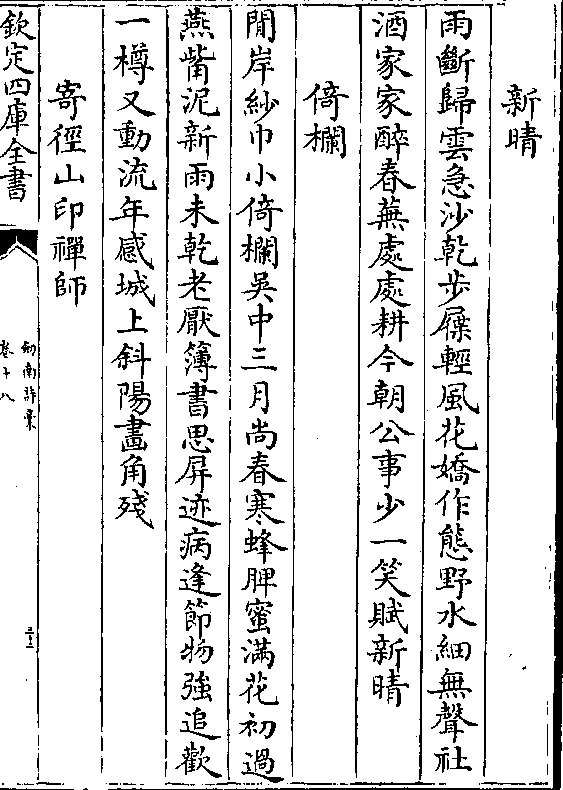 新晴
雨斷歸雲急沙乾步屧輕風花嬌作態野水細無聲社
酒家家醉春蕪處處耕今朝公事少一笑賦新晴
倚欄
閒岸紗巾小倚欄吳中三月尚春寒蜂脾蜜滿花初過
燕觜泥新雨未乾老厭簿書思屏迹病逢節物強追歡
一樽又動流年感城上斜陽畫角殘
寄徑山印禪師
欽定四庫全書
劍南詩稾
卷十八